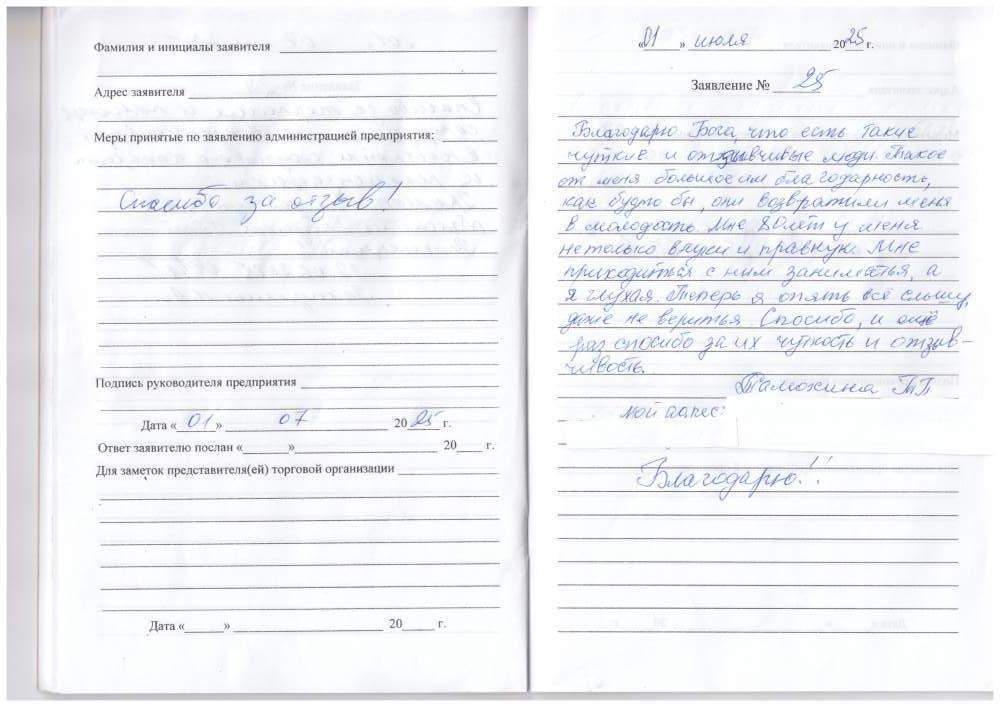 Фамилия и инициалы заявителя
Адрес заявителя
Меры принятые по заявлению администрацией предприятия:
Спасибо за отзыв!
Подпись руководителя предприятия
Дата «01» 07 2025 г.
Ответ заявителю послан «______» 20____ г.
Для заметок представителя(ей) торговой организации
Дата «______» 20_____ г.
«01» июля 2025 г.
Заявление № 25
Благодарю Бога, что есть такие
чуткие и отзывчивые люди. Такое
от меня большое им благодарность,
как будто бы, они возвратили меня
в молодость. Мне 80 лет у меня
не только внуки и правнуки. Мне
приходиться с ним заниматься, а
я глухая. Теперь я опять всё слышу,
даже не вериться. Спосибо, и ощё
раз спосибо за их чуткость и отзыв-
чивость.
Таможина ТП
мой адрес:
Благодарю!!